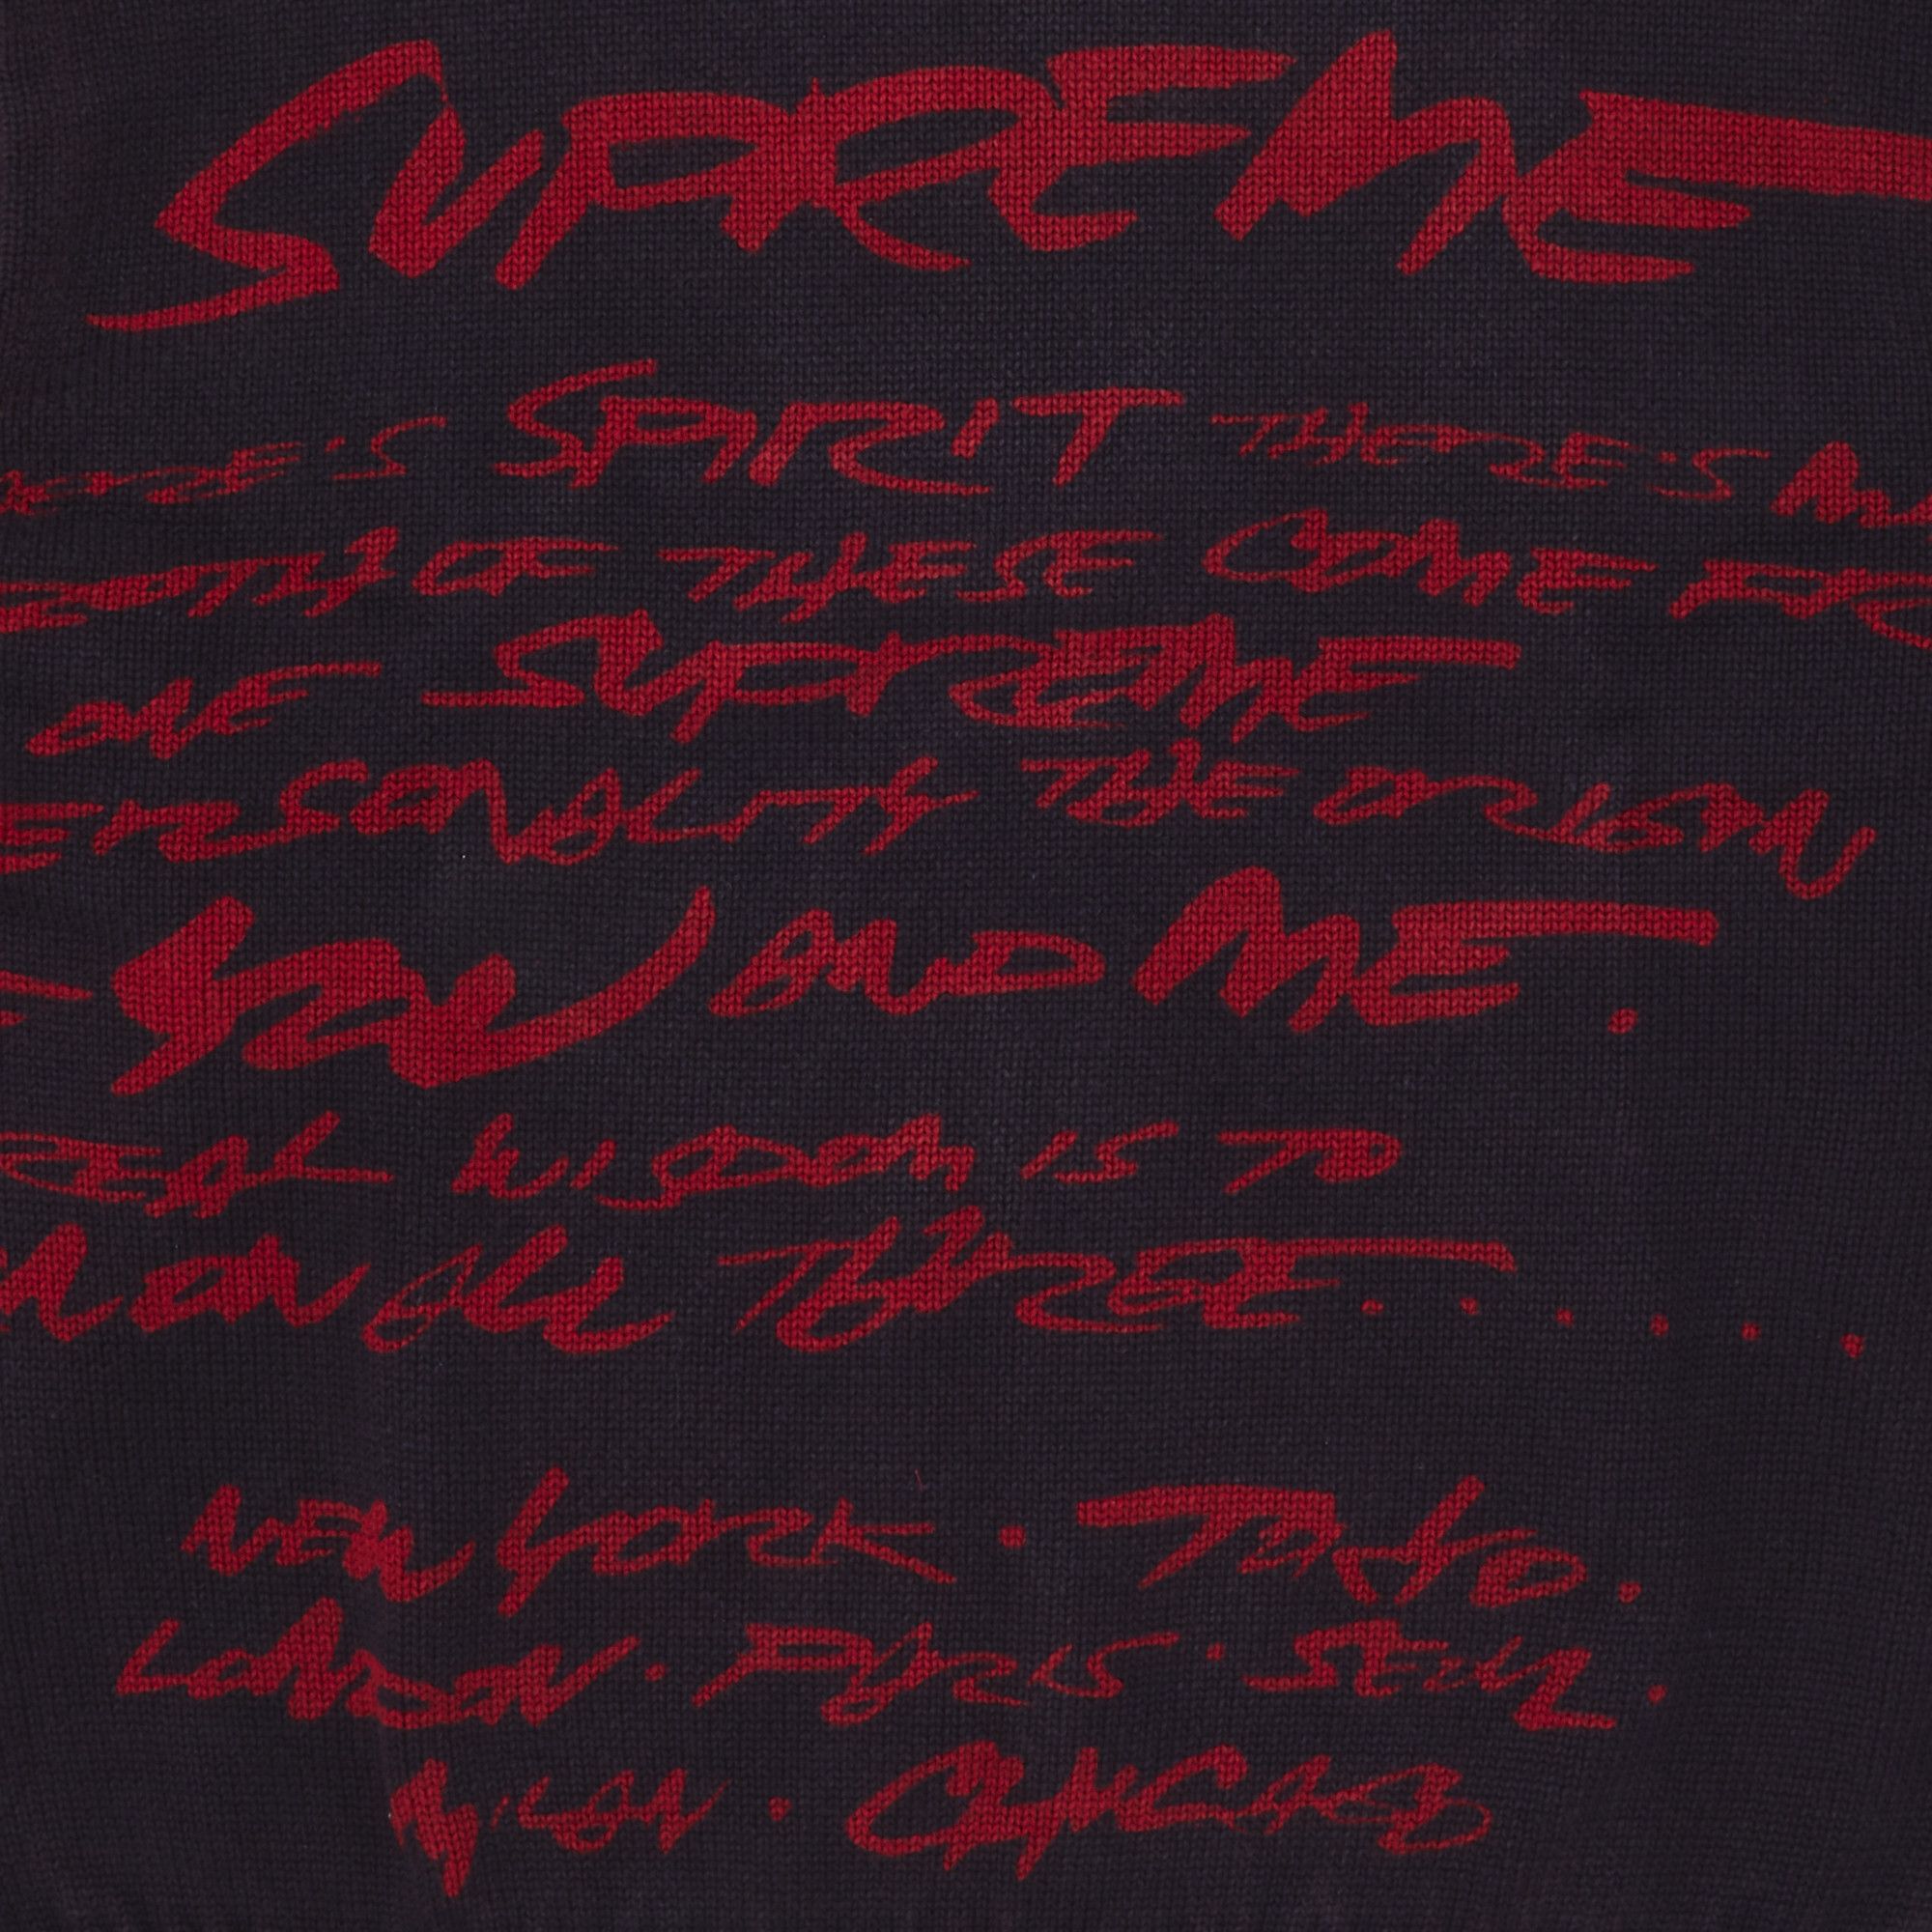 SUPREME
SPIRIT THERE'S
BOTH OF THESE COME
ONE SUPREME
ERSONALITY THE ORIGIN
YOU AND ME.
REAL WISDOM IS TO
ON ALL THREE......
NEW YORK · TOKYO.
LONDON · PARIS · SEOUL.
MILAN · CHICAGO